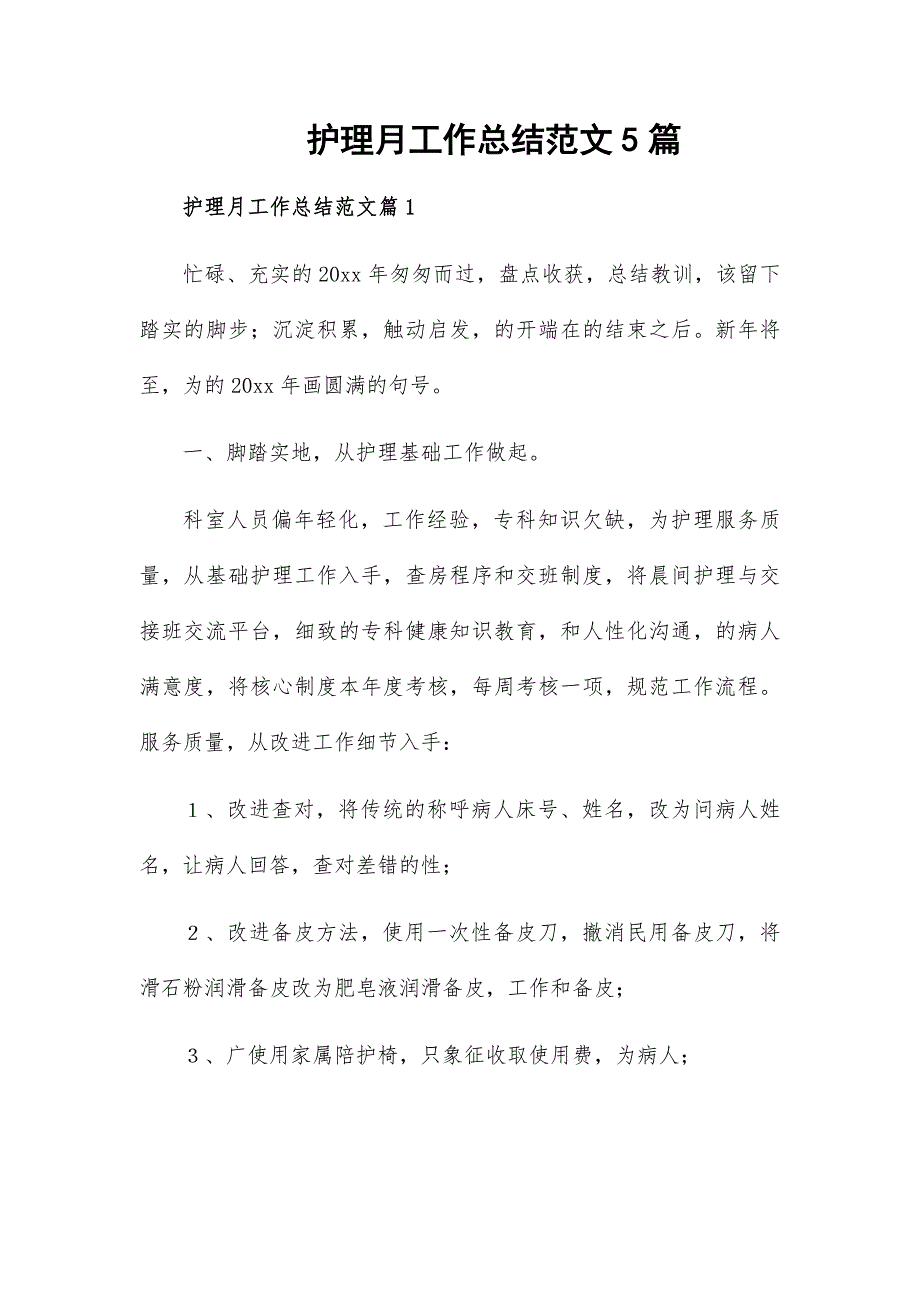 护理月工作总结范文5篇
护理月工作总结范文篇1
忙碌、充实的20xx年匆匆而过，盘点收获，总结教训，该留下
踏实的脚步；沉淀积累，触动启发，的开端在的结束之后。新年将
至，为的20xx年画圆满的句号。
一、脚踏实地，从护理基础工作做起。
科室人员偏年轻化，工作经验，专科知识欠缺，为护理服务质
量，从基础护理工作入手，查房程序和交班制度，将晨间护理与交
接班交流平台，细致的专科健康知识教育，和人性化沟通，的病人
满意度，将核心制度本年度考核，每周考核一项，规范工作流程。
服务质量，从改进工作细节入手：
1、改进查对，将传统的称呼病人床号、姓名，改为问病人姓
名，让病人回答，查对差错的性；
2、改进备皮方法，使用一次性备皮刀，撤消民用备皮刀，将
滑石粉润滑备皮改为肥皂液润滑备皮，工作和备皮；
3、广使用家属陪护椅，只象征收取使用费，为病人；